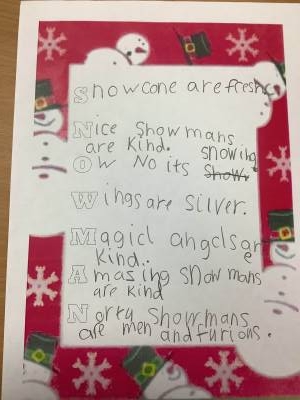 Snowcone are fresh
Nice Showmans
are kind. snowing
Ow No its Show.
Wings are silver.
Magicl angels are
kind..
Amasing snow mans
are kind
Norty Showmans
are men and furions.